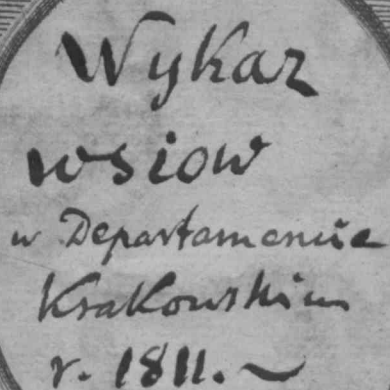 Wykaz
wsiow
w Departamencie
Krakowskim
r. 1811.